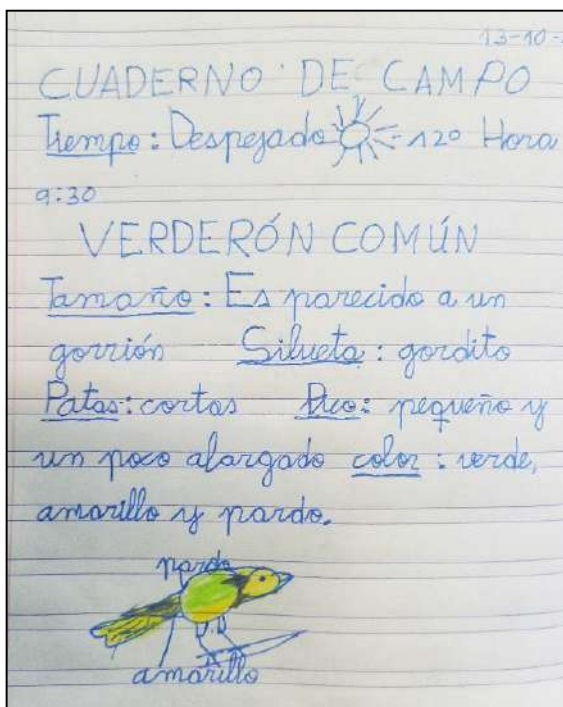 13-10-
CUADERNO DE CAMPO
Tiempo: Despejado - 12º Hora
9:30
VERDERÓN COMÚN
Tamaño: Es parecido a un
gorrión Silueta: gordito
Patas: cortas Pico: pequeño y
un poco alargado color: verde,
amarillo y pardo.
pardo
amarillo